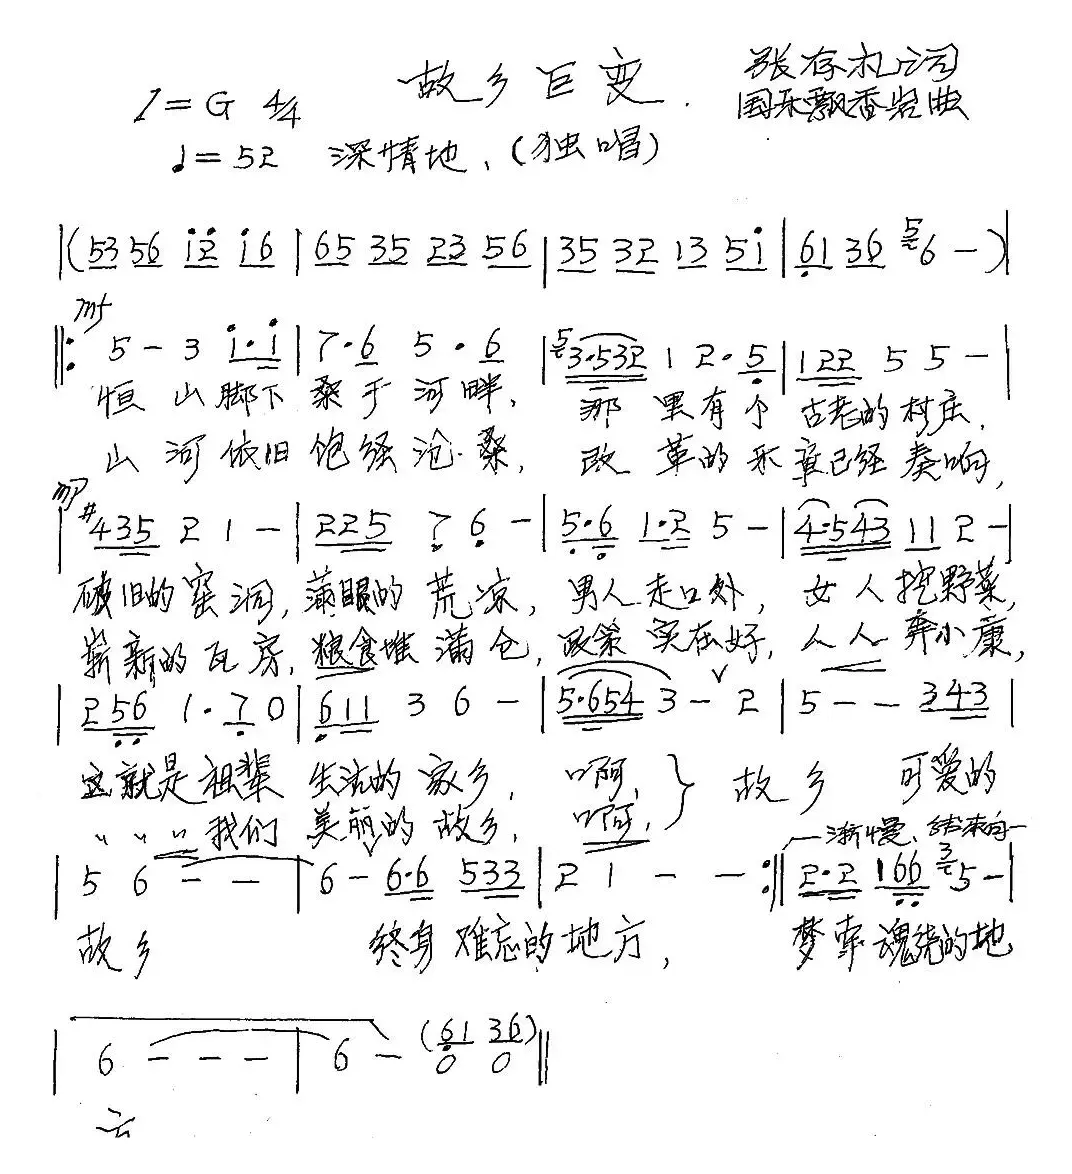 故乡巨变
张存礼词
国乐飘香岩曲
1=G 4/4
♩=52 深情地、(独唱)
|(53 56 i2 i6 | 65 35 23 56 | 35 32 13 5i | 61 36 5 6 — )|
mf
‖: 5 — 3 i·i | 7·6 5·6 | 5 3·532 1 2·5 | 122 5 5 — |
恒山脚下桑干河畔, 那里有个古老的村庄,
山河依旧饱经沧桑, 改革的乐章已经奏响,
mp
| #435 2 1 — | 225 7 6 — | 5·6 1·2 5 — | 4·543 11 2 — |
破旧的窑洞, 满眼的荒凉, 男人走口外, 女人挖野菜,
崭新的瓦房, 粮食堆满仓, 政策实在好, 人人奔小康,
| 256 1·7 0 | 611 3 6 — | 5·654 3 — 2 | 5 — — 343 |
这就是祖辈 生活的家乡, 啊, } 故乡 可爱的
〃 〃 〃 我们 美丽的故乡, 啊,
渐慢、结束句
| 5 6 — — | 6 — 6·6 533 | 2 1 — — :‖ 2·2 166 3 5 — |
故乡 终身难忘的地方, 梦牵魂绕的地
| 6 — — — | 6 — (61 36) ‖
0 0
方